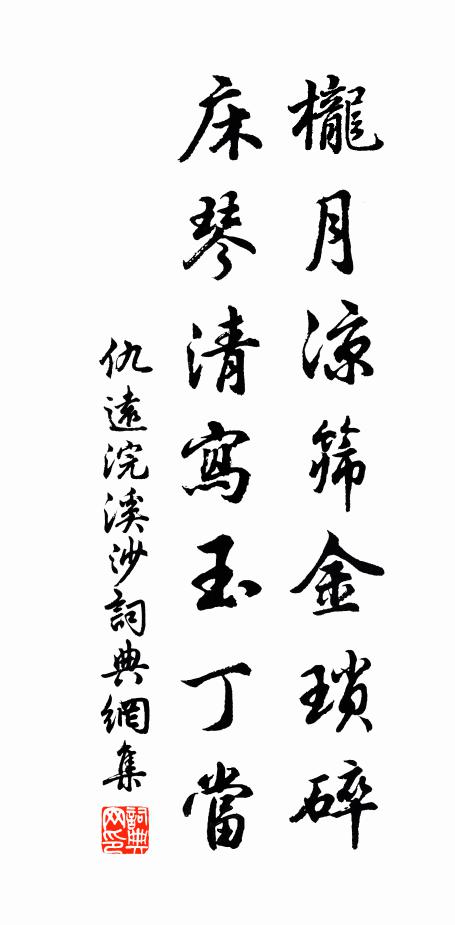 櫳月凉筛金瑣碎
床琴清寫玉丁當
仇遠浣溪沙詞典網集
詞典網印